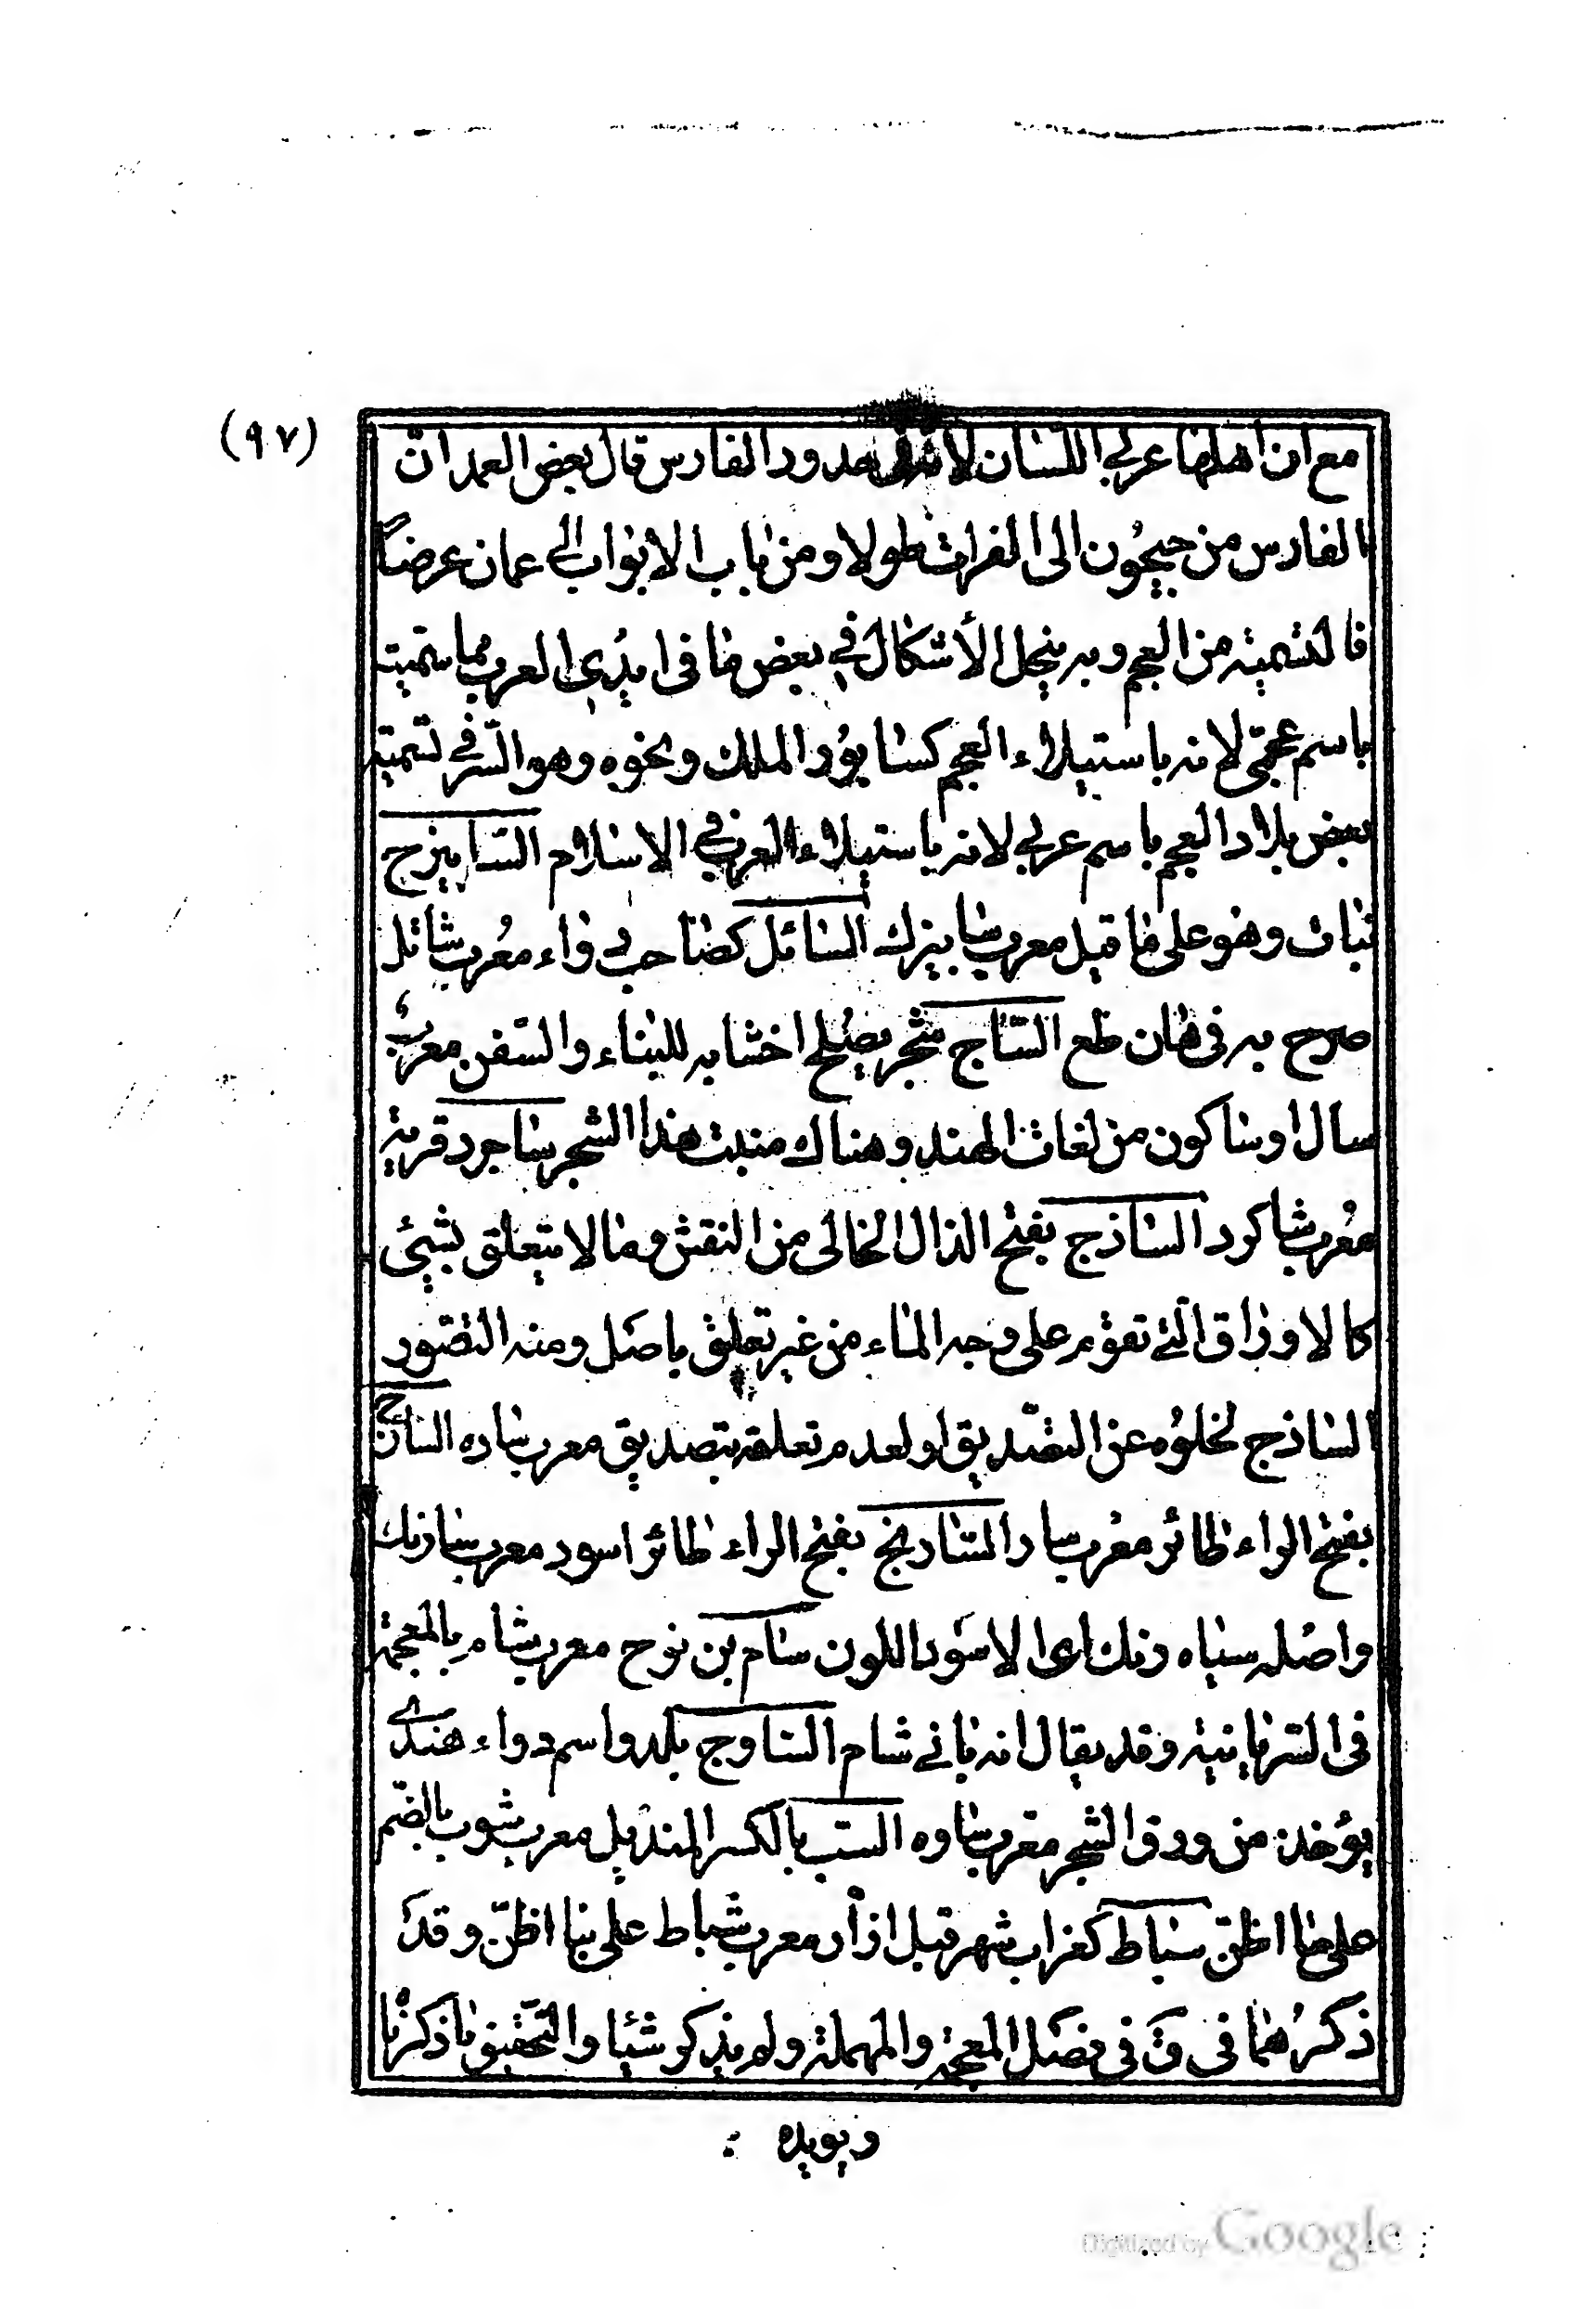 (٩٧)
مع ان اهلها عربي اللسان حدود الفارس قال بعض العمد ان
الفارس من جيحون الى الفرات طولا ومن باب الابواب الى عمان عرضاً
فالتسمية من العجم وبه ينحل الأشكال في بعض ما في ايدي العرب مما سميت
باسم عجمي لانه باستيلاء العجم كسابور الملك ونحوه وهو السر في تسمية
بعض بلاد العجم باسم عربي لانه باستيلاء العرب في الاسلام السابيزج
نبات وهو على ما قيل معرب سابيزك السائل كصاحب دواء معرب شائل
صرح به في هان طع السّاج شجر يصلح اخشابه للبناء والسّفن معرب
سال او ساكون من لغات الهند وهناك منبت هذا الشجر ساجرد قرية
معرب شاكرد الساذج بفتح الذال الخالى من النقش وما لا يتعلق بشيئ
كالاوراق التي تقوم على وجه الماء من غير تعلق باصل ومنه التصور
الساذج لخلوه عن التصديق او لعدم تعلقه بتصديق معرب ساده السارج
بفتح الراء طائر معرب سار السارنج بفتح الراء طائر اسود معرب سارنك
واصله سياه رنك اى الاسود اللون سام بن نوح معرب شام بالمعجمة
فى السريانية وقد يقال انه بانے شام الساوج بلد واسم دواء هندے
يؤخذ من ورق الشجر معرب ساوه السب بالكسر المنديل معرب شوب بالضم
على ما اظن سباط كغراب شهر قبل اذار معرب شباط على ما اظنّ وقد
ذكرهما فى ق فى فصل المعجمة والمهملة ولم يذكر شيئا والتحقيق ما ذكرنا
ويويده
Digitized by Google